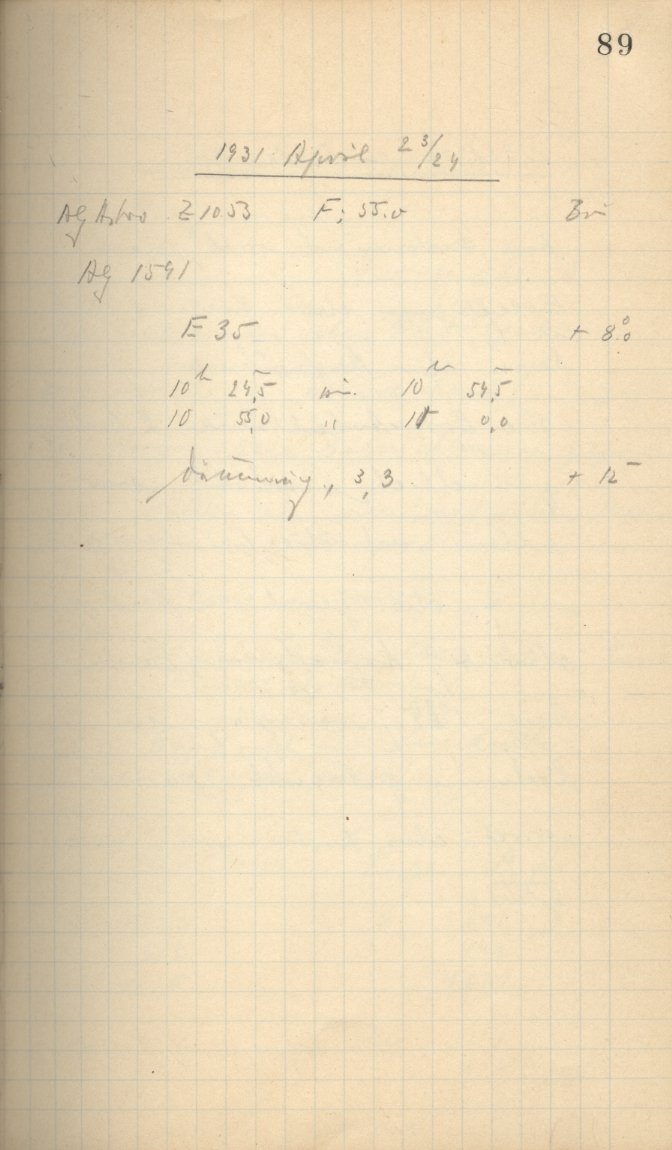 89
1931 April 23/24
Ag Astro Z 1053 F: 55.0
Ag 1591
E 35 + 8°.0
10h 24,5 10h 54,5
10 55,0 " 11 0,0
Dämmerung, 3,3 + 12